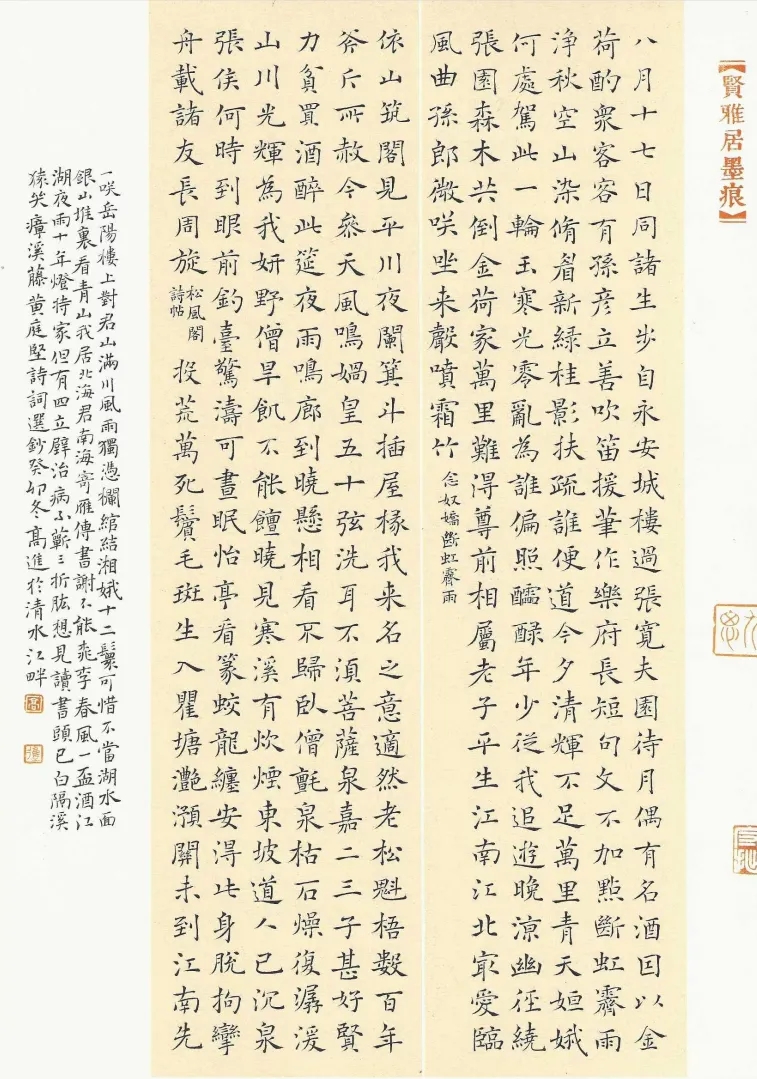 【賢雅居墨痕】
八月十七日同諸生步自永安城樓過張寬夫園待月偶有名酒因以金
荷酌衆客客有孫彥立善吹笛援筆作樂府長短句文不加點斷虹霽雨
淨秋空山染脩眉新綠桂影扶疏誰便道今夕清輝不足萬里青天姮娥
何處駕此一輪玉寒光零亂為誰偏照醽醁年少從我追遊晚涼幽徑繞
張園森木共倒金荷家萬里難得尊前相屬老子平生江南江北最愛臨
風曲孫郎微咲坐来聲噴霜竹 念奴嬌斷虹霽雨
依山筑閣見平川夜闌箕斗插屋椽我来名之意適然老松魁梧数百年
斧斤所赦今參天風鳴媧皇五十弦洗耳不須菩薩泉嘉二三子甚好賢
力貧買酒醉此筵夜雨鳴廊到曉懸相看不歸臥僧氈泉枯石燥復潺湲
山川光輝為我妍野僧旱飢不能饘曉見寒溪有炊煙東坡道人已沉泉
張侯何時到眼前釣臺驚濤可晝眠怡亭看篆蛟龍纏安得此身脫拘攣
舟載諸友長周旋 松風閣詩帖 投荒萬死鬢毛斑生入瞿塘灩澦關未到江南先
一咲岳陽樓上對君山滿川風雨獨憑欄綰結湘娥十二鬟可惜不當湖水面
銀山堆裏看青山我居北海君南海寄雁傳書謝不能桃李春風一盃酒江
湖夜雨十年燈持家但有四立壁治病不蘄三折肱想見讀書頭已白隔溪
猿哭瘴溪藤黃庭堅詩詞選鈔癸卯冬高進於清水江畔